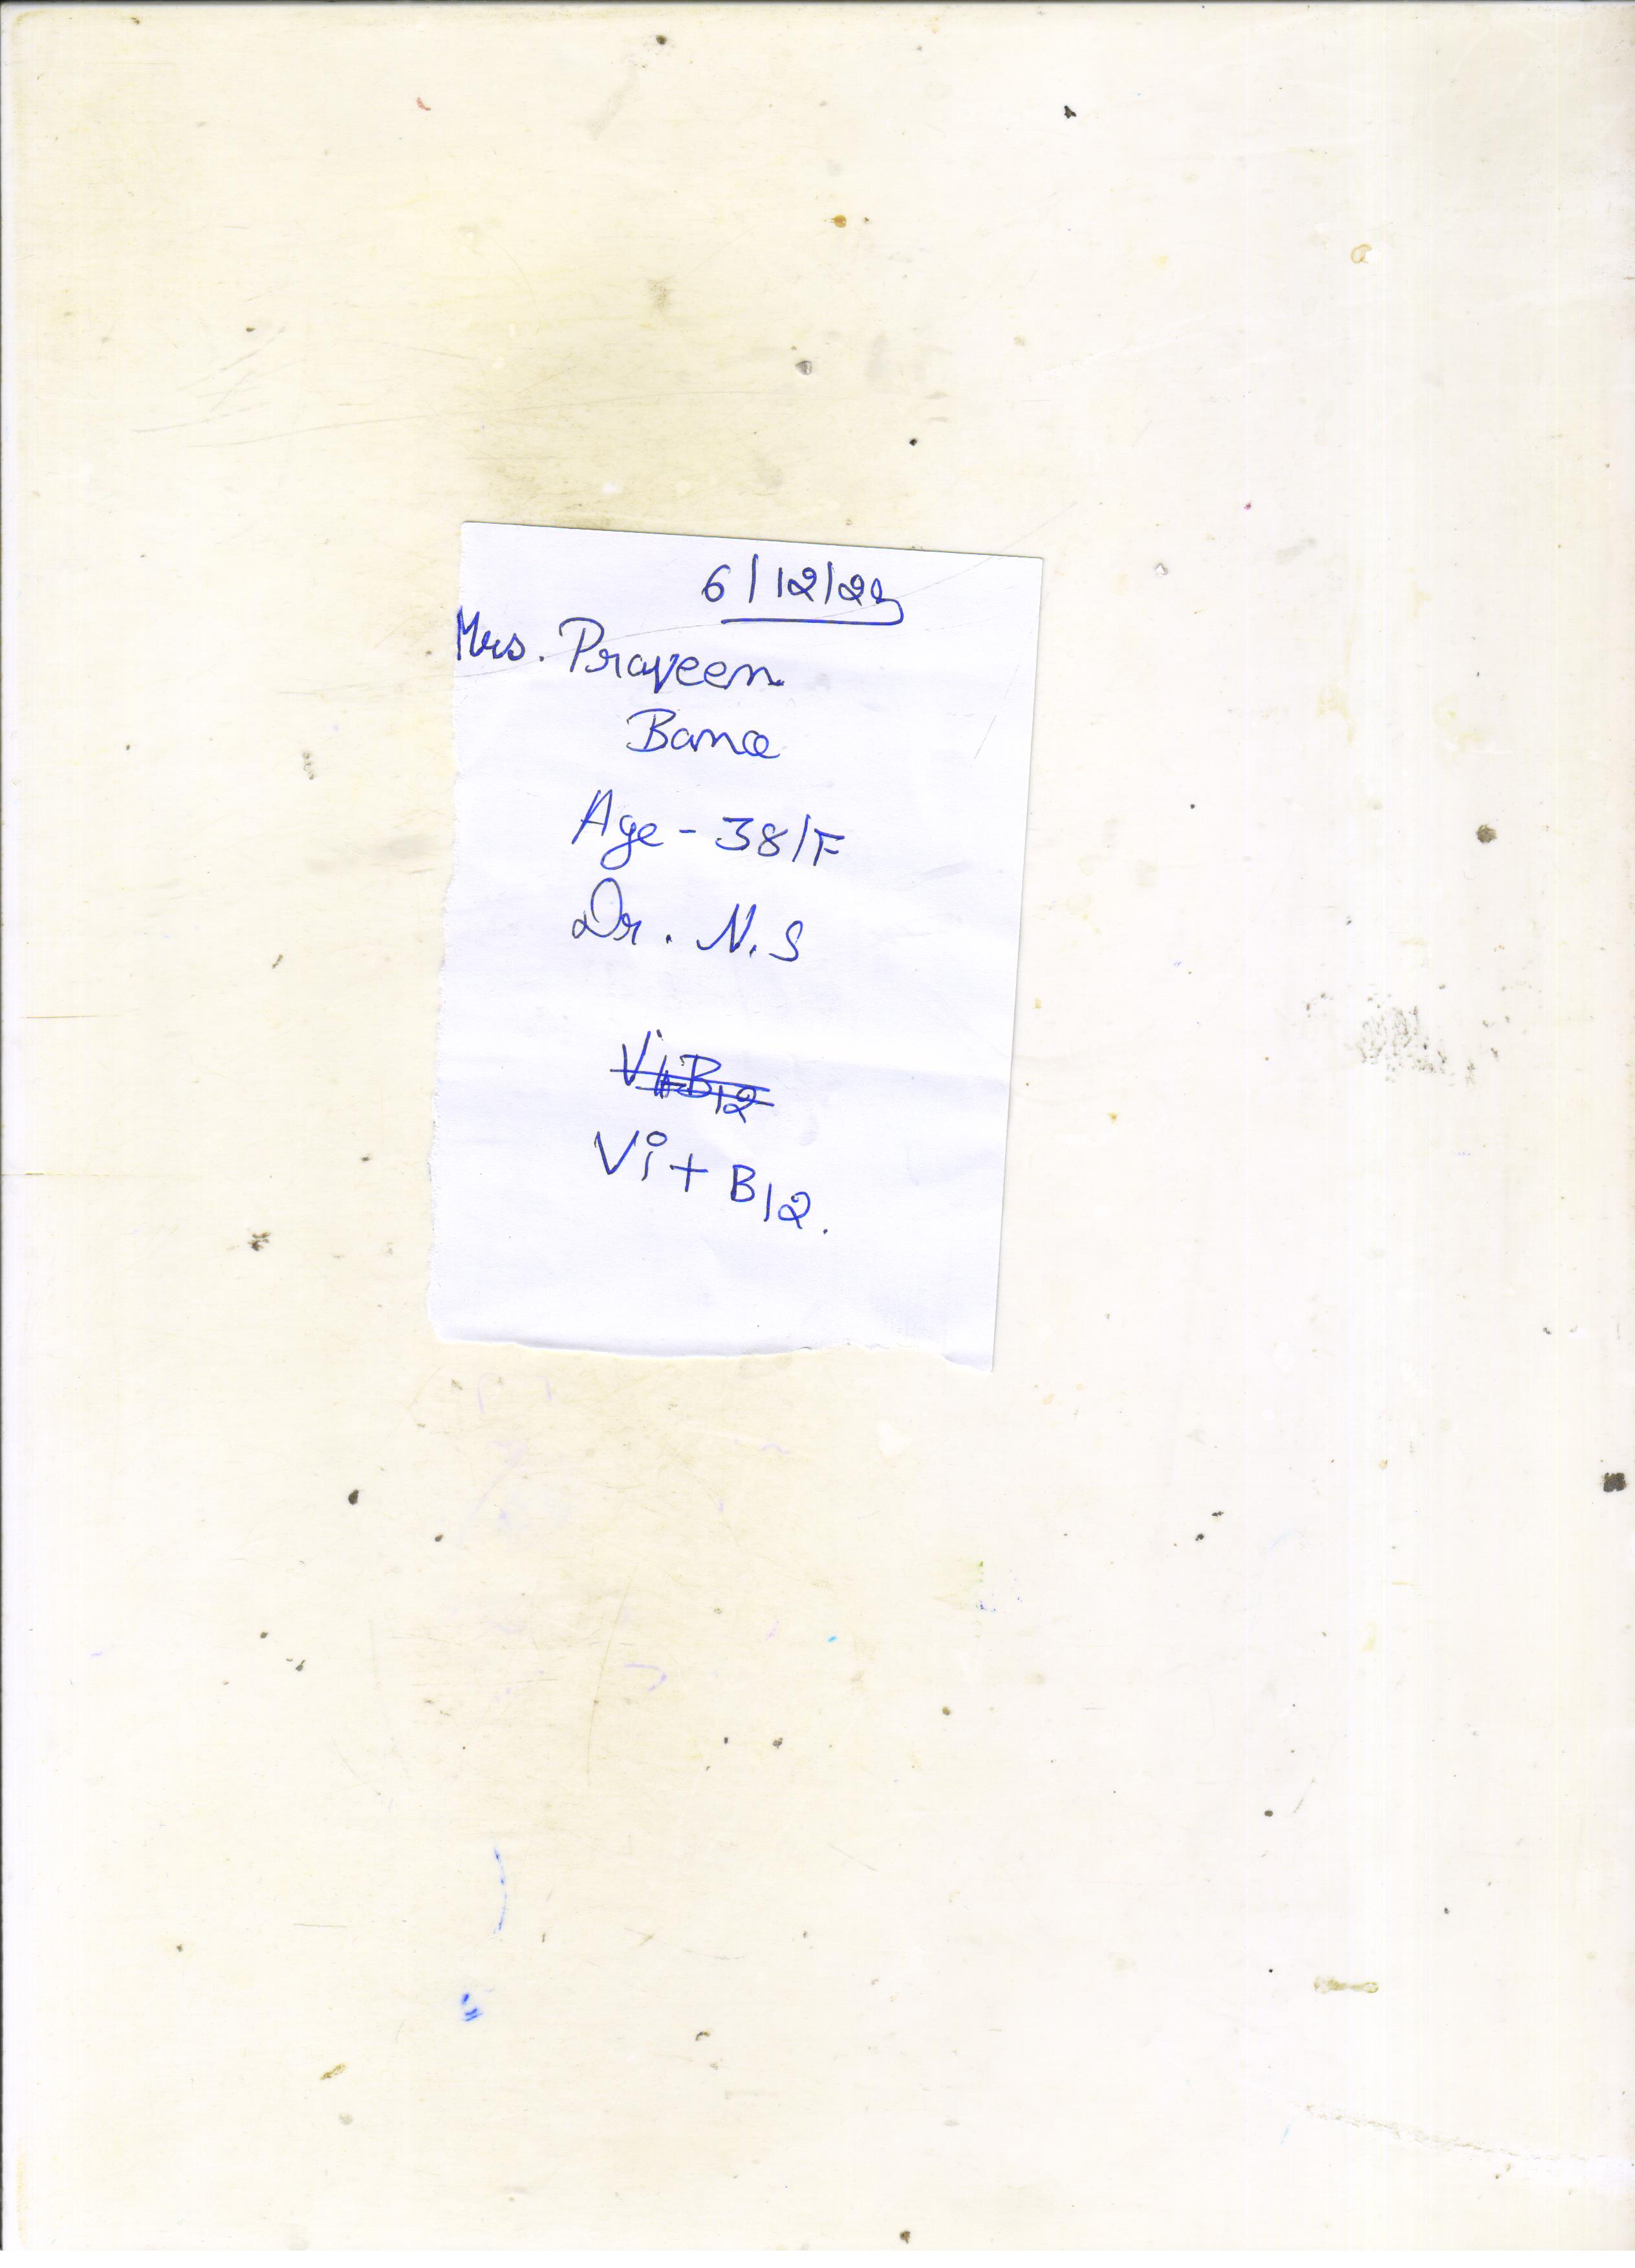 6/12/23
Mrs. Praveen
Bano
Age - 38/F
Dr. N.S
Vit B12
Vit B12.